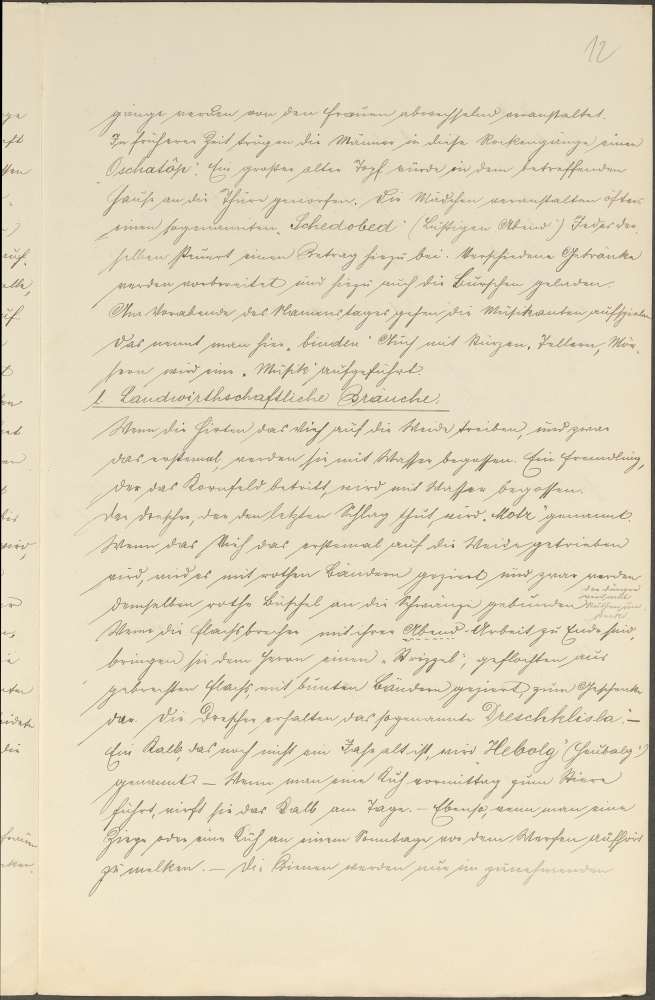 12
gänge werden von den Frauen abwechselnd veranstaltet.
In früherer Zeit trugen die Männer in diese Rockengänge einen
"Oschatöpf". Ein großer alter Topf wurde in dem betreffenden
Hause an die Thüre geworfen. Die Mädchen veranstalten öfters
einen sogenannten "Schedobed" (Lustigen Abend") Jedes der-
selben steuert einen Betrag hiezu bei. Verschiedene Getränke
werden vorbereitet und hiezu auch die Burschen geladen.
Am Vorabende des Namenstages gehen die Musikanten aufspielen
Das nennt man hier "binden". Auch mit Stürzen, Tellern, Mör-
sern wird eine "Musik" aufgeführt.
l. Landwirthschaftliche Bräuche.
Wenn die Hirten das Vieh auf die Weide treiben, und zwar
das erstemal, werden sie mit Wasser begossen. Ein Fremdling,
der das Kornfeld betritt, wird mit Wasser begossen.
Der Drescher, der den letzten Schlag thut, wird "Motz" genannt.
Wenn das Vieh das erstemal auf die Weide getrieben
wird, wird es mit rothen Bändern geziert und zwar werden
demselben rothe Büschel an die Schwänze gebunden
Wenn die Flachsbrecher mit ihrer Abend-Arbeit zu Ende sind,
bringen sie dem Herrn einen, geflochten aus
gebrochten Flachs, mit bunten Bändern geziert, zum Geschenke
dar. Die Drescher erhalten das sogenannte "Dreschklisla". –
Ein Kalb, das noch nicht ein Jahr alt ist, wird "Hebolg" (Heubalg")
genannt. – Wenn man eine Kuh vormittag zum Stiere
führt, wirft sie das Kalb am Tage. – Ebenso, wenn man eine
Ziege oder eine Kuh an einem Sonntage vor dem Werfen aufhört
zu melken. – Die Bienen werden nur im zunehmenden